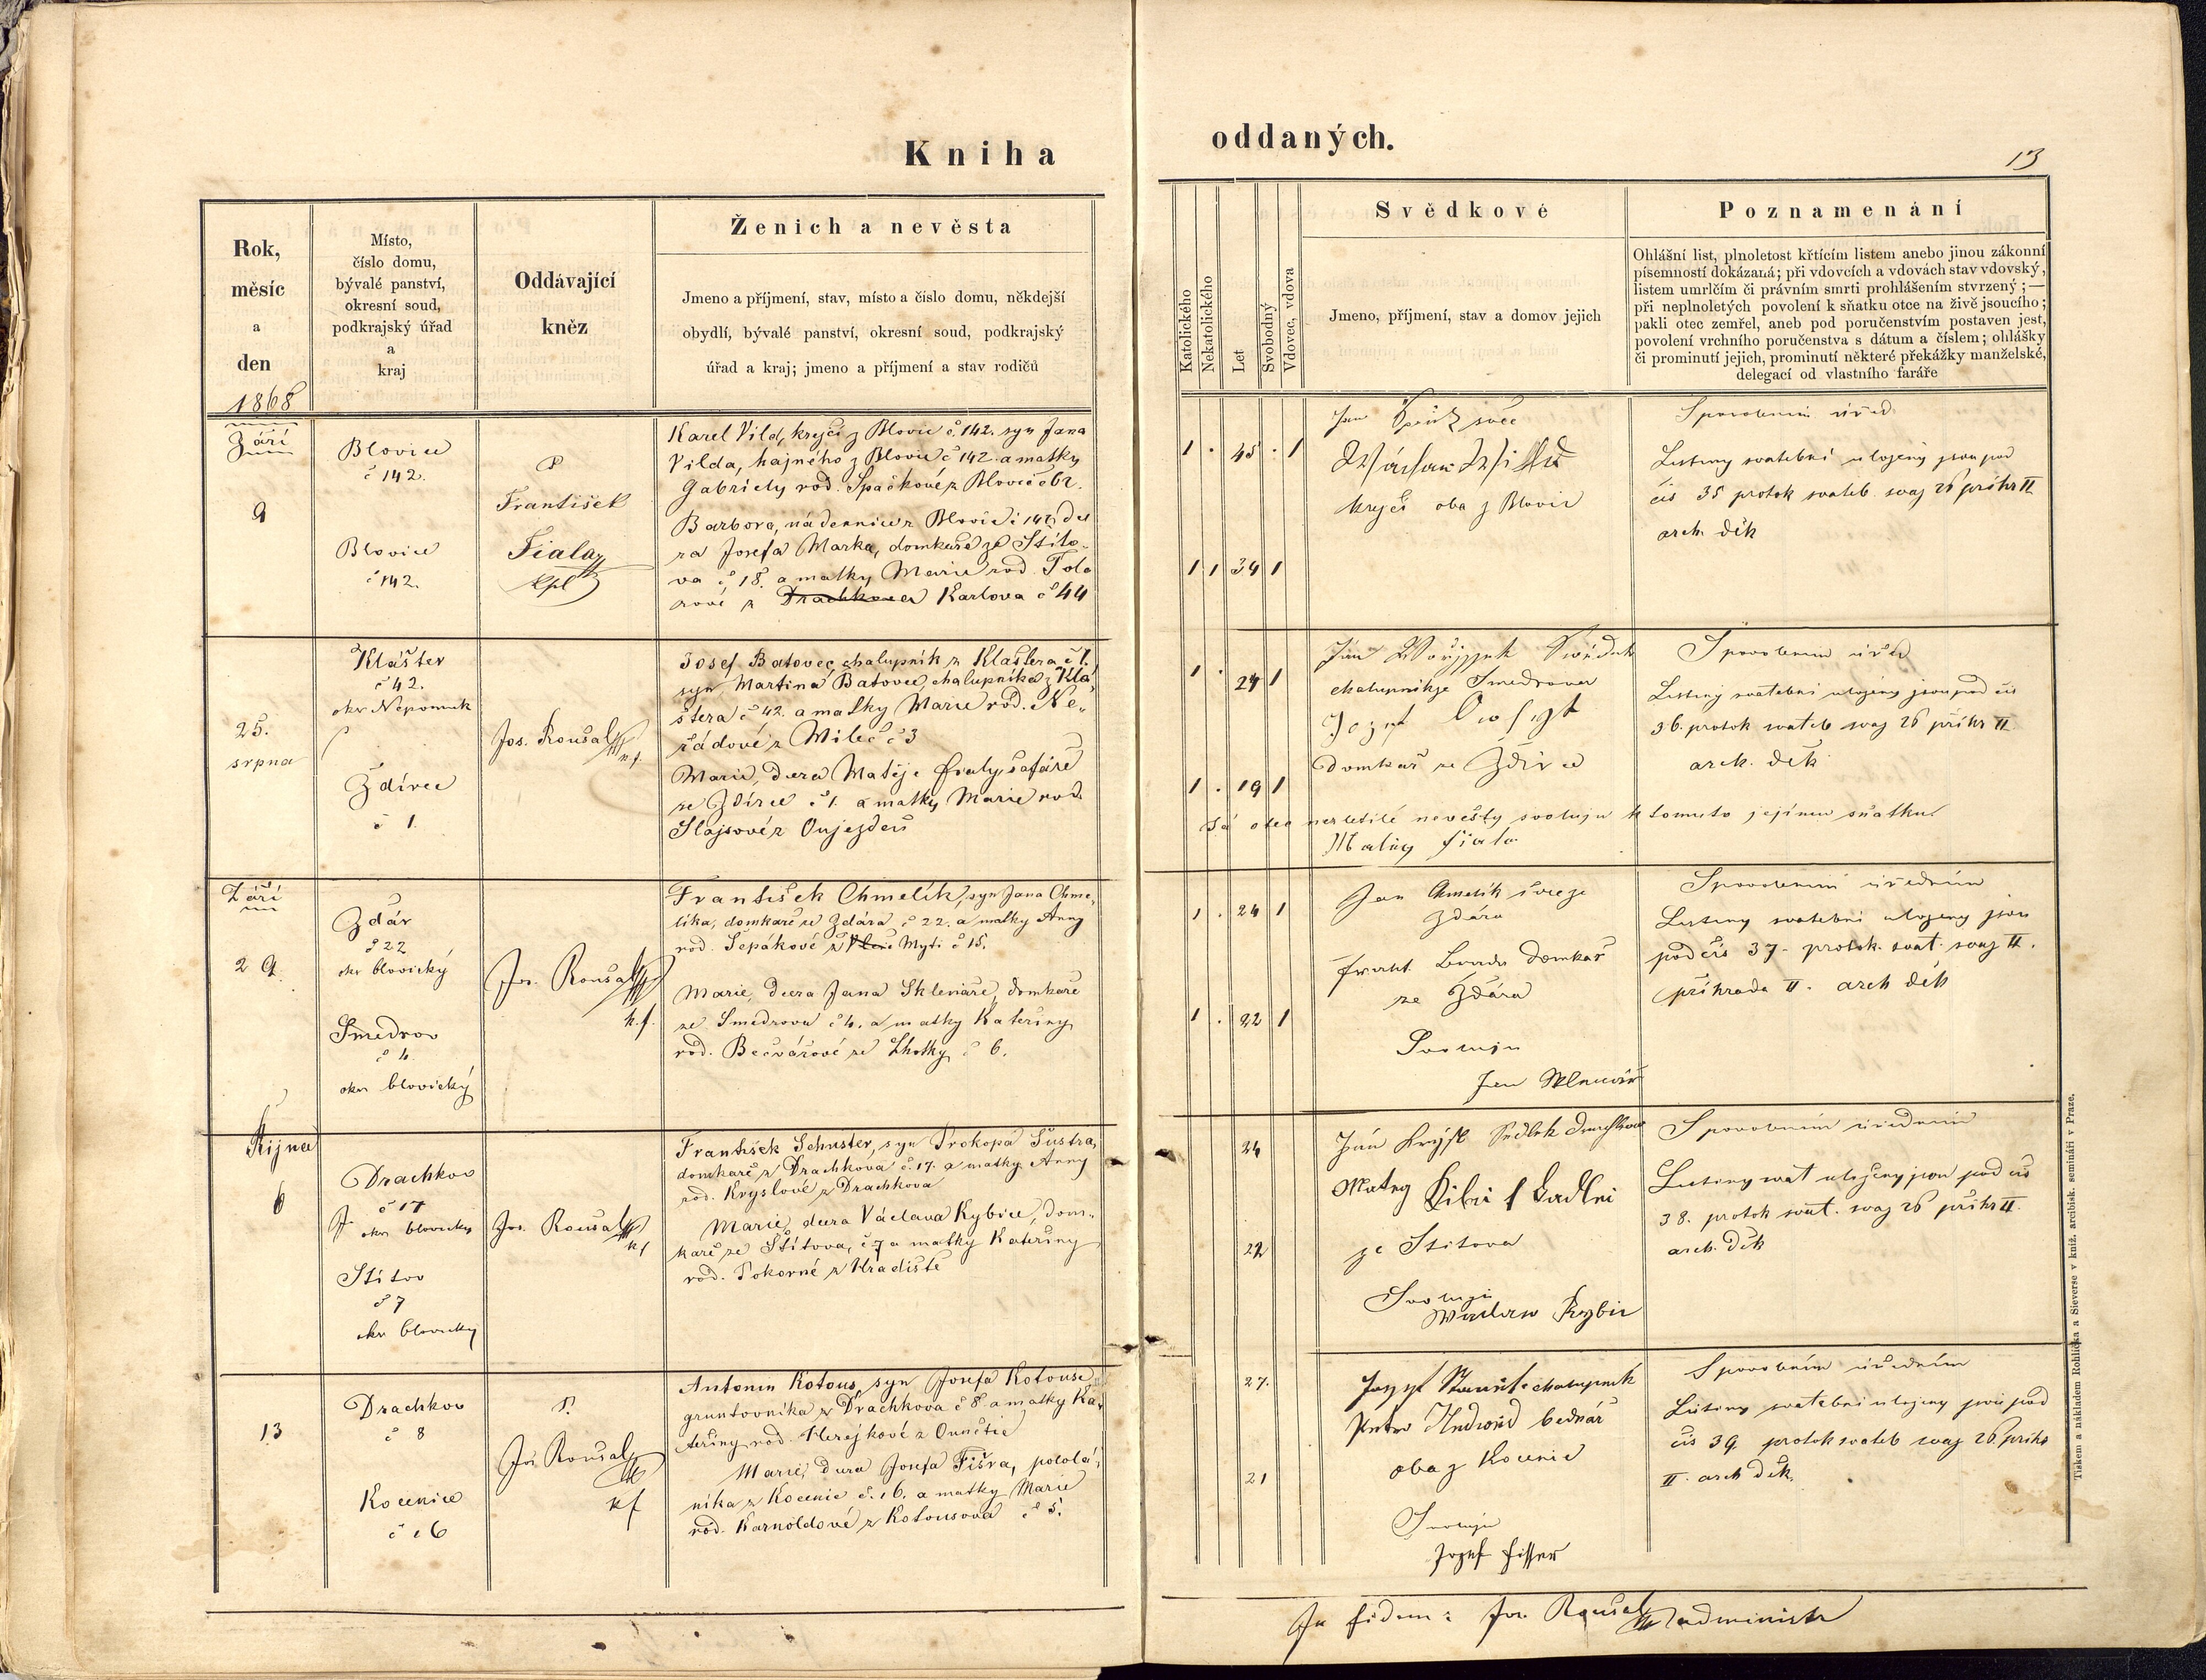 Kniha
oddaných.
13
Rok,
měsíc
a
den
1868
Místo,
číslo domu,
bývalé panství,
okresní soud,
podkrajský úřad
a
kraj
Oddávající
kněz
Ženich a nevěsta
Jmeno a příjmení, stav, místo a číslo domu, někdejší
obydlí, bývalé panství, okresní soud, podkrajský
úřad a kraj; jmeno a příjmení a stav rodičů
Katolického
Nekatolického
Let
Svobodný
Vdovec, vdova
Svědkové
Jmeno, příjmení, stav a domov jejich
Poznamenání
Ohlášní list, plnoletost křtícím listem anebo jinou zákonní
písemností dokázaná; při vdovcích a vdovách stav vdovský,
listem umrlčím či právním smrti prohlášením stvrzený; —
při neplnoletých povolení k sňatku otce na živě jsoucího;
pakli otec zemřel, aneb pod poručenstvím postaven jest,
povolení vrchního poručenstva s dátum a číslem; ohlášky
či prominutí jejich, prominutí některé překážky manželské,
delegací od vlastního faráře
Září
9
Blovice
č 142.
Blovice
č 142.
P
František
Fiala
kpl
Karel Vild, krejčí z Blovic č. 142. syn Jana
Vilda, hajného z Blovic č 142. a matky
Gabriely rod. Špačkové z Blovic č 62.
Barbora, nádennice z Blovic č 142, dce
ra Josefa Marka, domkaře ze Štíto-
va č 18. a matky Marie rod. Tola
rové z Drachkova Karlova č 44
1 . 45 . 1
1 1 34 1
Jan švec
Wáclav
krejčí oba z Blovic
Spůsobem úřed.
Listiny svatební uloženy jsou pod
čís 35 protok svateb. svaz 26 příhr II
arch. děk
25.
srpna
Klášter
č 42.
okr Nepomuk
Ždírec
č 1.
Jos. Roušal
k.f.
Josef Batovec, chalupník z Kláštera č 1.
syn Martina Batovce, chalupníka z Klá-
štera č 42. a matky Marie rod. Ne-
řádové z Milče č 3
Marie, dcera Matěje fialy, šafáře
ze Ždírce č 1. a matky Marie rod.
Šlajsové z Oujezda
1 . 24 1
1 . 19 1
Jan
chalupník ze Smedrova
Jozef
domkař ze Ždírce
Já otec nezletilé nevěsty svoluju k tomuto jejímu sňatku
Matěj fiala
Spůsobem úřed
Listiny svatební uloženy jsou pod čís
36. protok svateb svaz 26 příhr II
arch. děk
Září
29.
Ždár
č 22
okr blovický
Smedrov
č 4.
okr blovický
Jos. Roušal
k.f.
František Chmelík, syn Jana Chme-
líka, domkaře ze Ždára č 22. a matky Anny
rod. Šepákové z Vlčí Myti č 15.
Marie, dcera Jana Skleniáře, domkaře
ze Smedrova č 4. a matky Kateřiny
rod. Bečvářové ze Lhotky č 6.
1 . 24 1
1 . 22 1
Jan Chmelík švec ze
Ždára
frant. domkař
ze Ždára
Svoluju
Jan
Spůsobem úředním
Listiny svatební uloženy jsou
pod čís 37. protok. svat. svaz II.
příhrada II. arch děk
Října
6
Drachkov
č 17
okr blovický
Štítov
č 7
okr blovický
Jos. Roušal
kf
František Schuster, syn Prokopa Šustra,
domkaře z Drachkova č. 17. a matky Anny
rod. Kryslové z Drachkova
Marie, dcera Václava Kybice, dom-
kaře ze Štítova, č 7 a matky Kateřiny
rod. Pokorné z Hradiště
24
22
Jan Krýsl
Matěg
ze Štítova
Svoluji
Waclaw Kybic
Spůsobem úředním
Listiny svat uloženy jsou pod čís
38. protok svat. svaz 26 příhr II.
arch. děk
13
Drachkov
č 8
Kocenice
č 16
P.
Jos. Roušal
kf
Antonín Kotous, syn Josefa Kotouse
gruntovníka z Drachkova č 8. a matky Ka-
teřiny rod. Herejkové z Ounětic
Marie, dcera Josefa Fišra, pololá-
níka z Kocenic č. 16. a matky Marie
rod. Karnoldové z Kotousova č 5.
27.
21
Jozef chalupník
Petr bednář
oba z Kocenic
Svoluju
Jozef Fisser
Spůsobem úředním
Listiny svatební uloženy jsou pod
čís 39 protok svateb svaz 26. příhr
II. arch děk.
In fidem: Jos. Roušal administr
Tiskem a nákladem Rohlíčka a Sieverse v kníž. arcibisk. semináři v Praze.